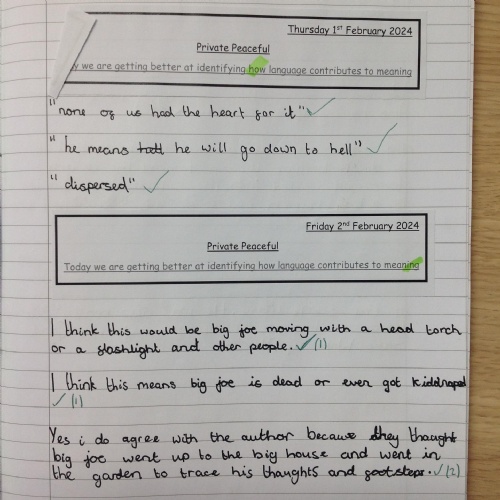 Thursday 1st February 2024
Private Peaceful
y we are getting better at identifying how language contributes to meaning
"none of us had the heart for it" ✓
"he means hell he will go down to hell" ✓
"dispersed" ✓
Friday 2nd February 2024
Private Peaceful
Today we are getting better at identifying how language contributes to meaning
I think this would be big joe moving with a head torch
or a flashlight and other people. ✓(1)
I think this means big joe is dead or even got kiddnaped
✓(1)
Yes i do agree with the author because they thought
big joe went up to the big house and went in
the garden to trace his thaughts and footsteps. ✓(2)